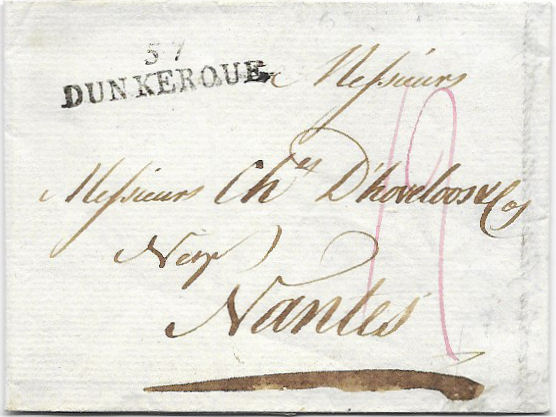 57
DUNKERQUE
Messieurs
Messieurs Chles D'hoveloos & Co
Negt
Nantes